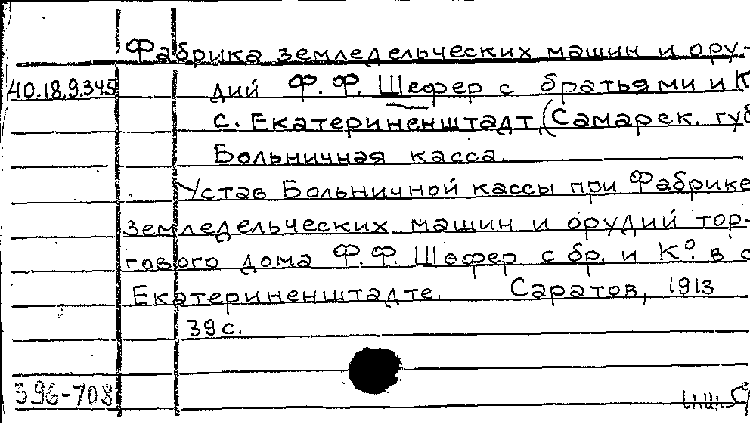 Фабрика земледельческих машин и ору-
40.18.9.345 дий Ф. Ф. Шефер с братьями и К
с. Екатериненштадт, (Самарск. губ
Больничная касса.
Устав Больничной кассы при Фабрике
земледельческих машин и орудий тор-
гового дома Ф. Ф. Шефер с бр. и К° в с
Екатериненштадте. Саратов, 1913
39 с.
396-708